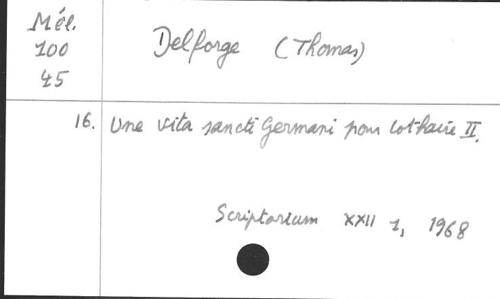 Mél.
100
45
Delforge (Thomas)
16. Une vita sancti Germani pour Lothaire II.
Scriptorium XXII 1, 1968